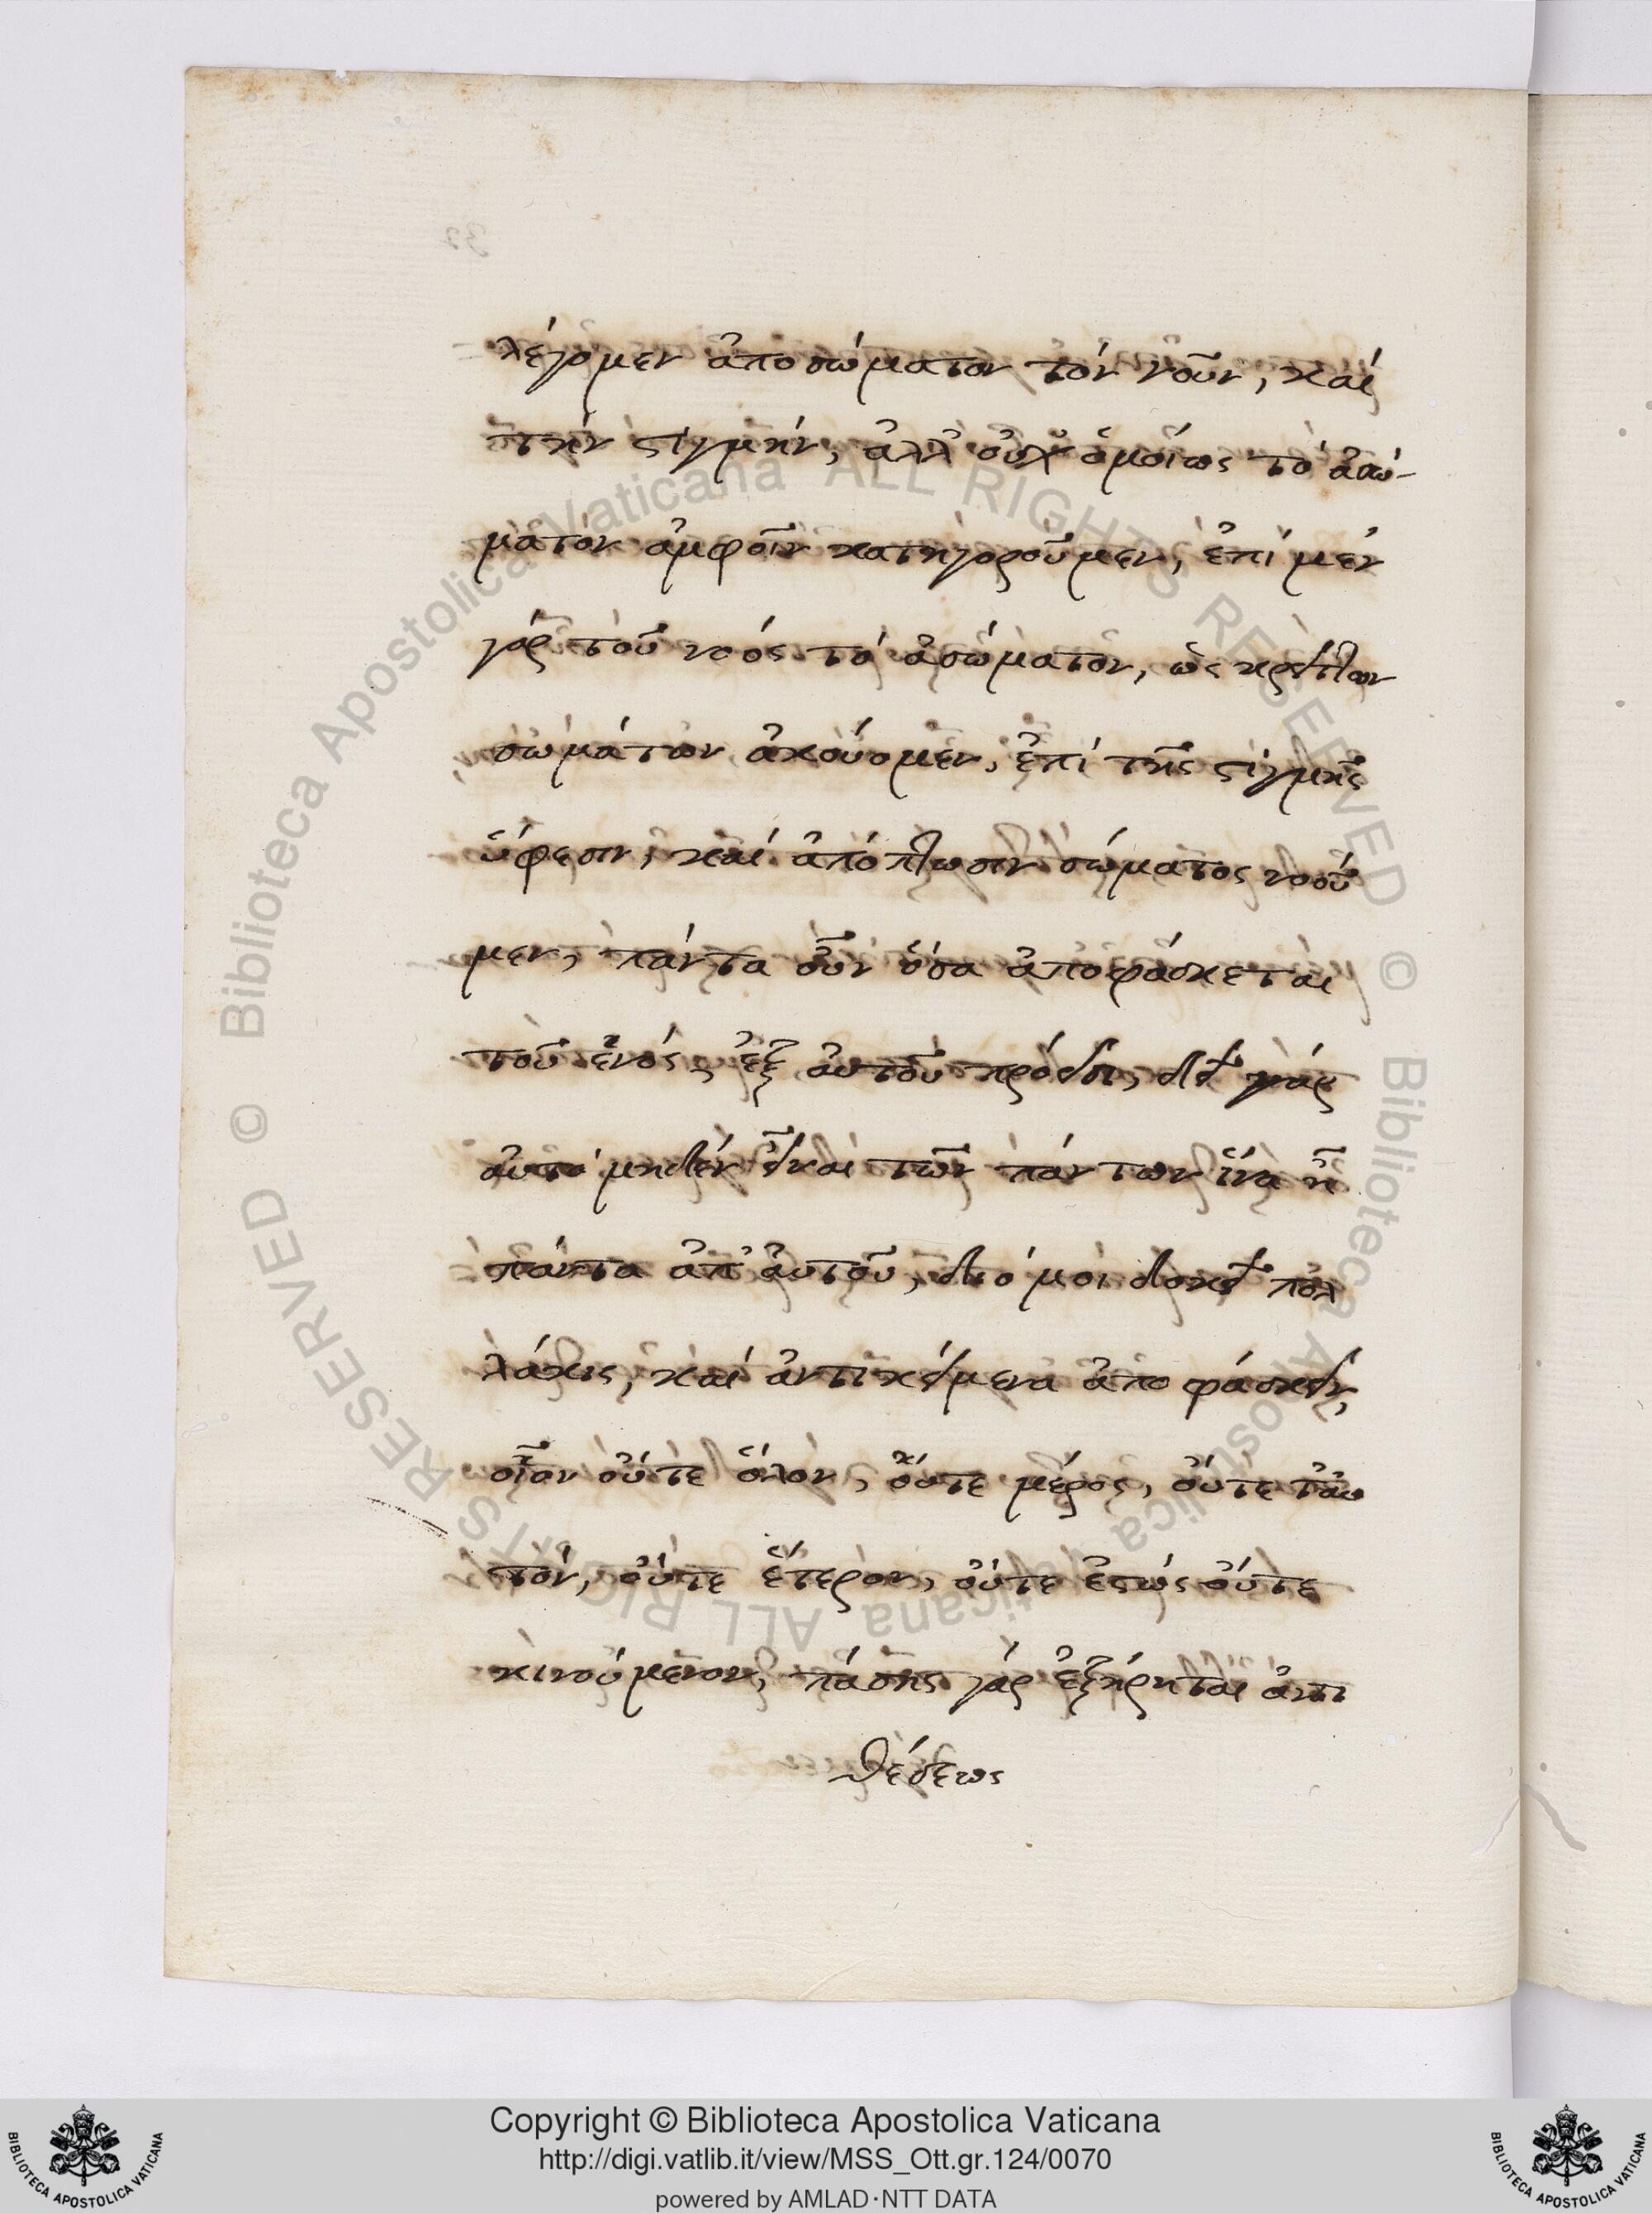 λέγομεν ἀποσώματον τὸν νοῦν, καὶ
τὴν στιγμὴν, ἀλλ' οὐχ ὁμοίως τὸ ἀσώ-
ματον ἀμφοῖν κατηγοροῦμεν, ἐπὶ μὲν
γὰρ τοῦ νοός τὸ ἀσώματον, ὡς κρεῖττον
σωμάτων ἀκούομεν, ἐπὶ τῆς στιγμῆς
ὕφεσιν, καὶ ἀπόπτωσιν σώματος νοοῦ
μεν, πάντα οὖν ὅσα ἀποφάσκεται
τοῦ ἑνός, ἐξ αὐτοῦ πρόεισι, δεῖ γὰρ
αὐτὸ μηδὲν εἶναι τῶν πάντων ἵνα ᾖ
πάντα ἀπ' αὐτοῦ, διό μοι δοκεῖ πολ
λάκις, καὶ ἀντικείμενα ἀποφάσκειν,
οἷον οὔτε ὅλον, οὔτε μέρος, οὔτε ταυ
τόν, οὔτε ἕτερον, οὔτε ἑστώς οὔτε
κινούμενον, πάσης γὰρ ἐξῄρηται ἀντι
θέσεως
Copyright © Biblioteca Apostolica Vaticana
http://digi.vatlib.it/view/MSS_Ott.gr.124/0070
powered by AMLAD·NTT DATA
BIBLIOTECA APOSTOLICA VATICANA
BIBLIOTECA APOSTOLICA VATICANA
© Biblioteca Apostolica Vaticana ALL RIGHTS RESERVED
© Biblioteca Apostolica Vaticana ALL RIGHTS RESERVED